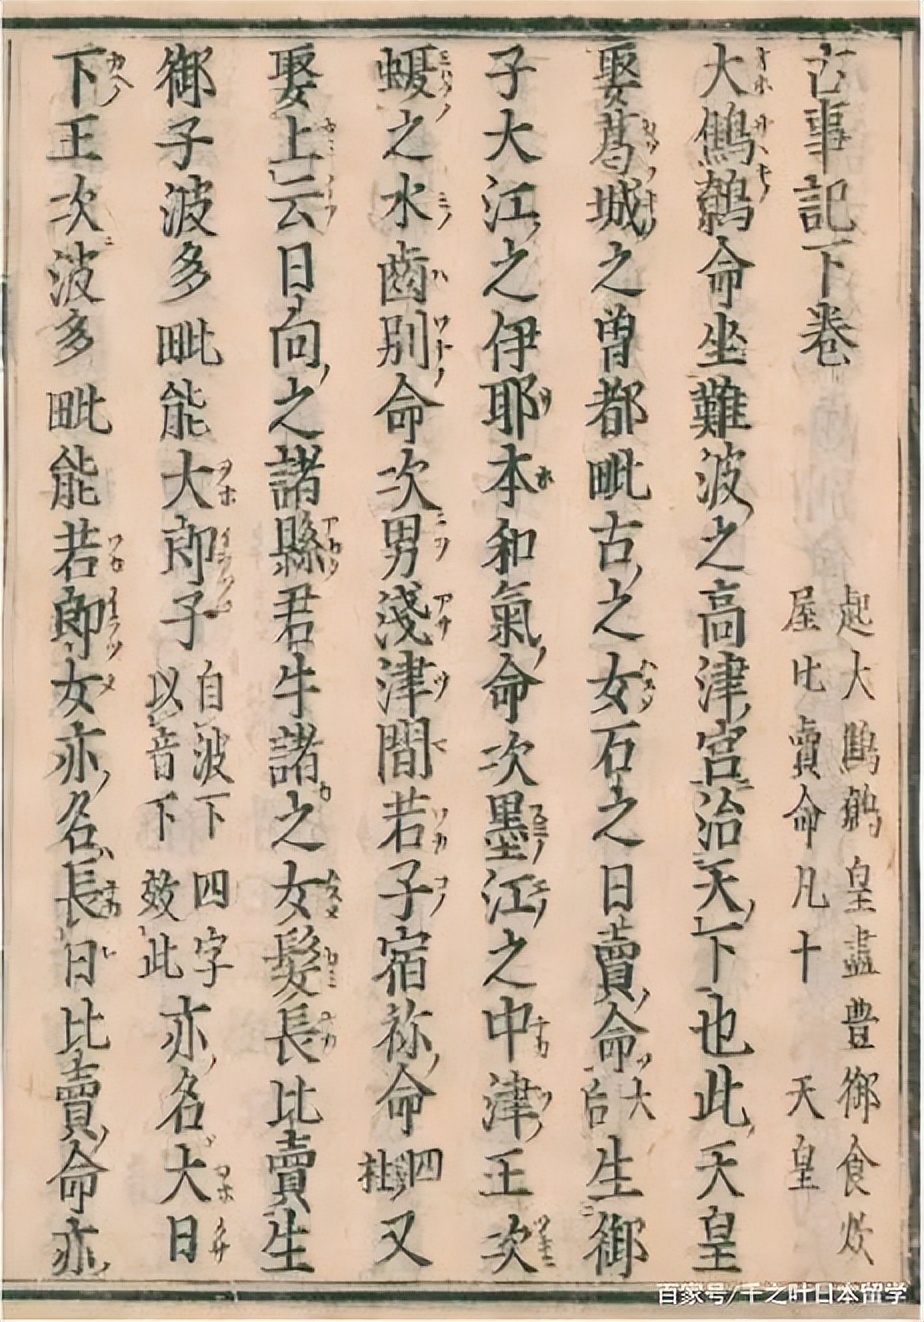 古事記下巻
起大鷦鷯皇盡豊御食炊
屋比賣命凡十　天皇
大鷦鷯命坐難波之高津宮治天下也此天皇
娶葛城之曽都毗古之女石之日賣命大后生御
子大江之伊耶本和氣命次墨江之中津王次
蝮之水齒別命次男淺津間若子宿祢命四柱又
娶上云日向之諸縣君牛諸之女髮長比賣生
御子波多毗能大郎子自波下四字以音下效此亦名大日
下王次波多毗能若郎女亦名長日比賣命亦
百家号/千之叶日本留学